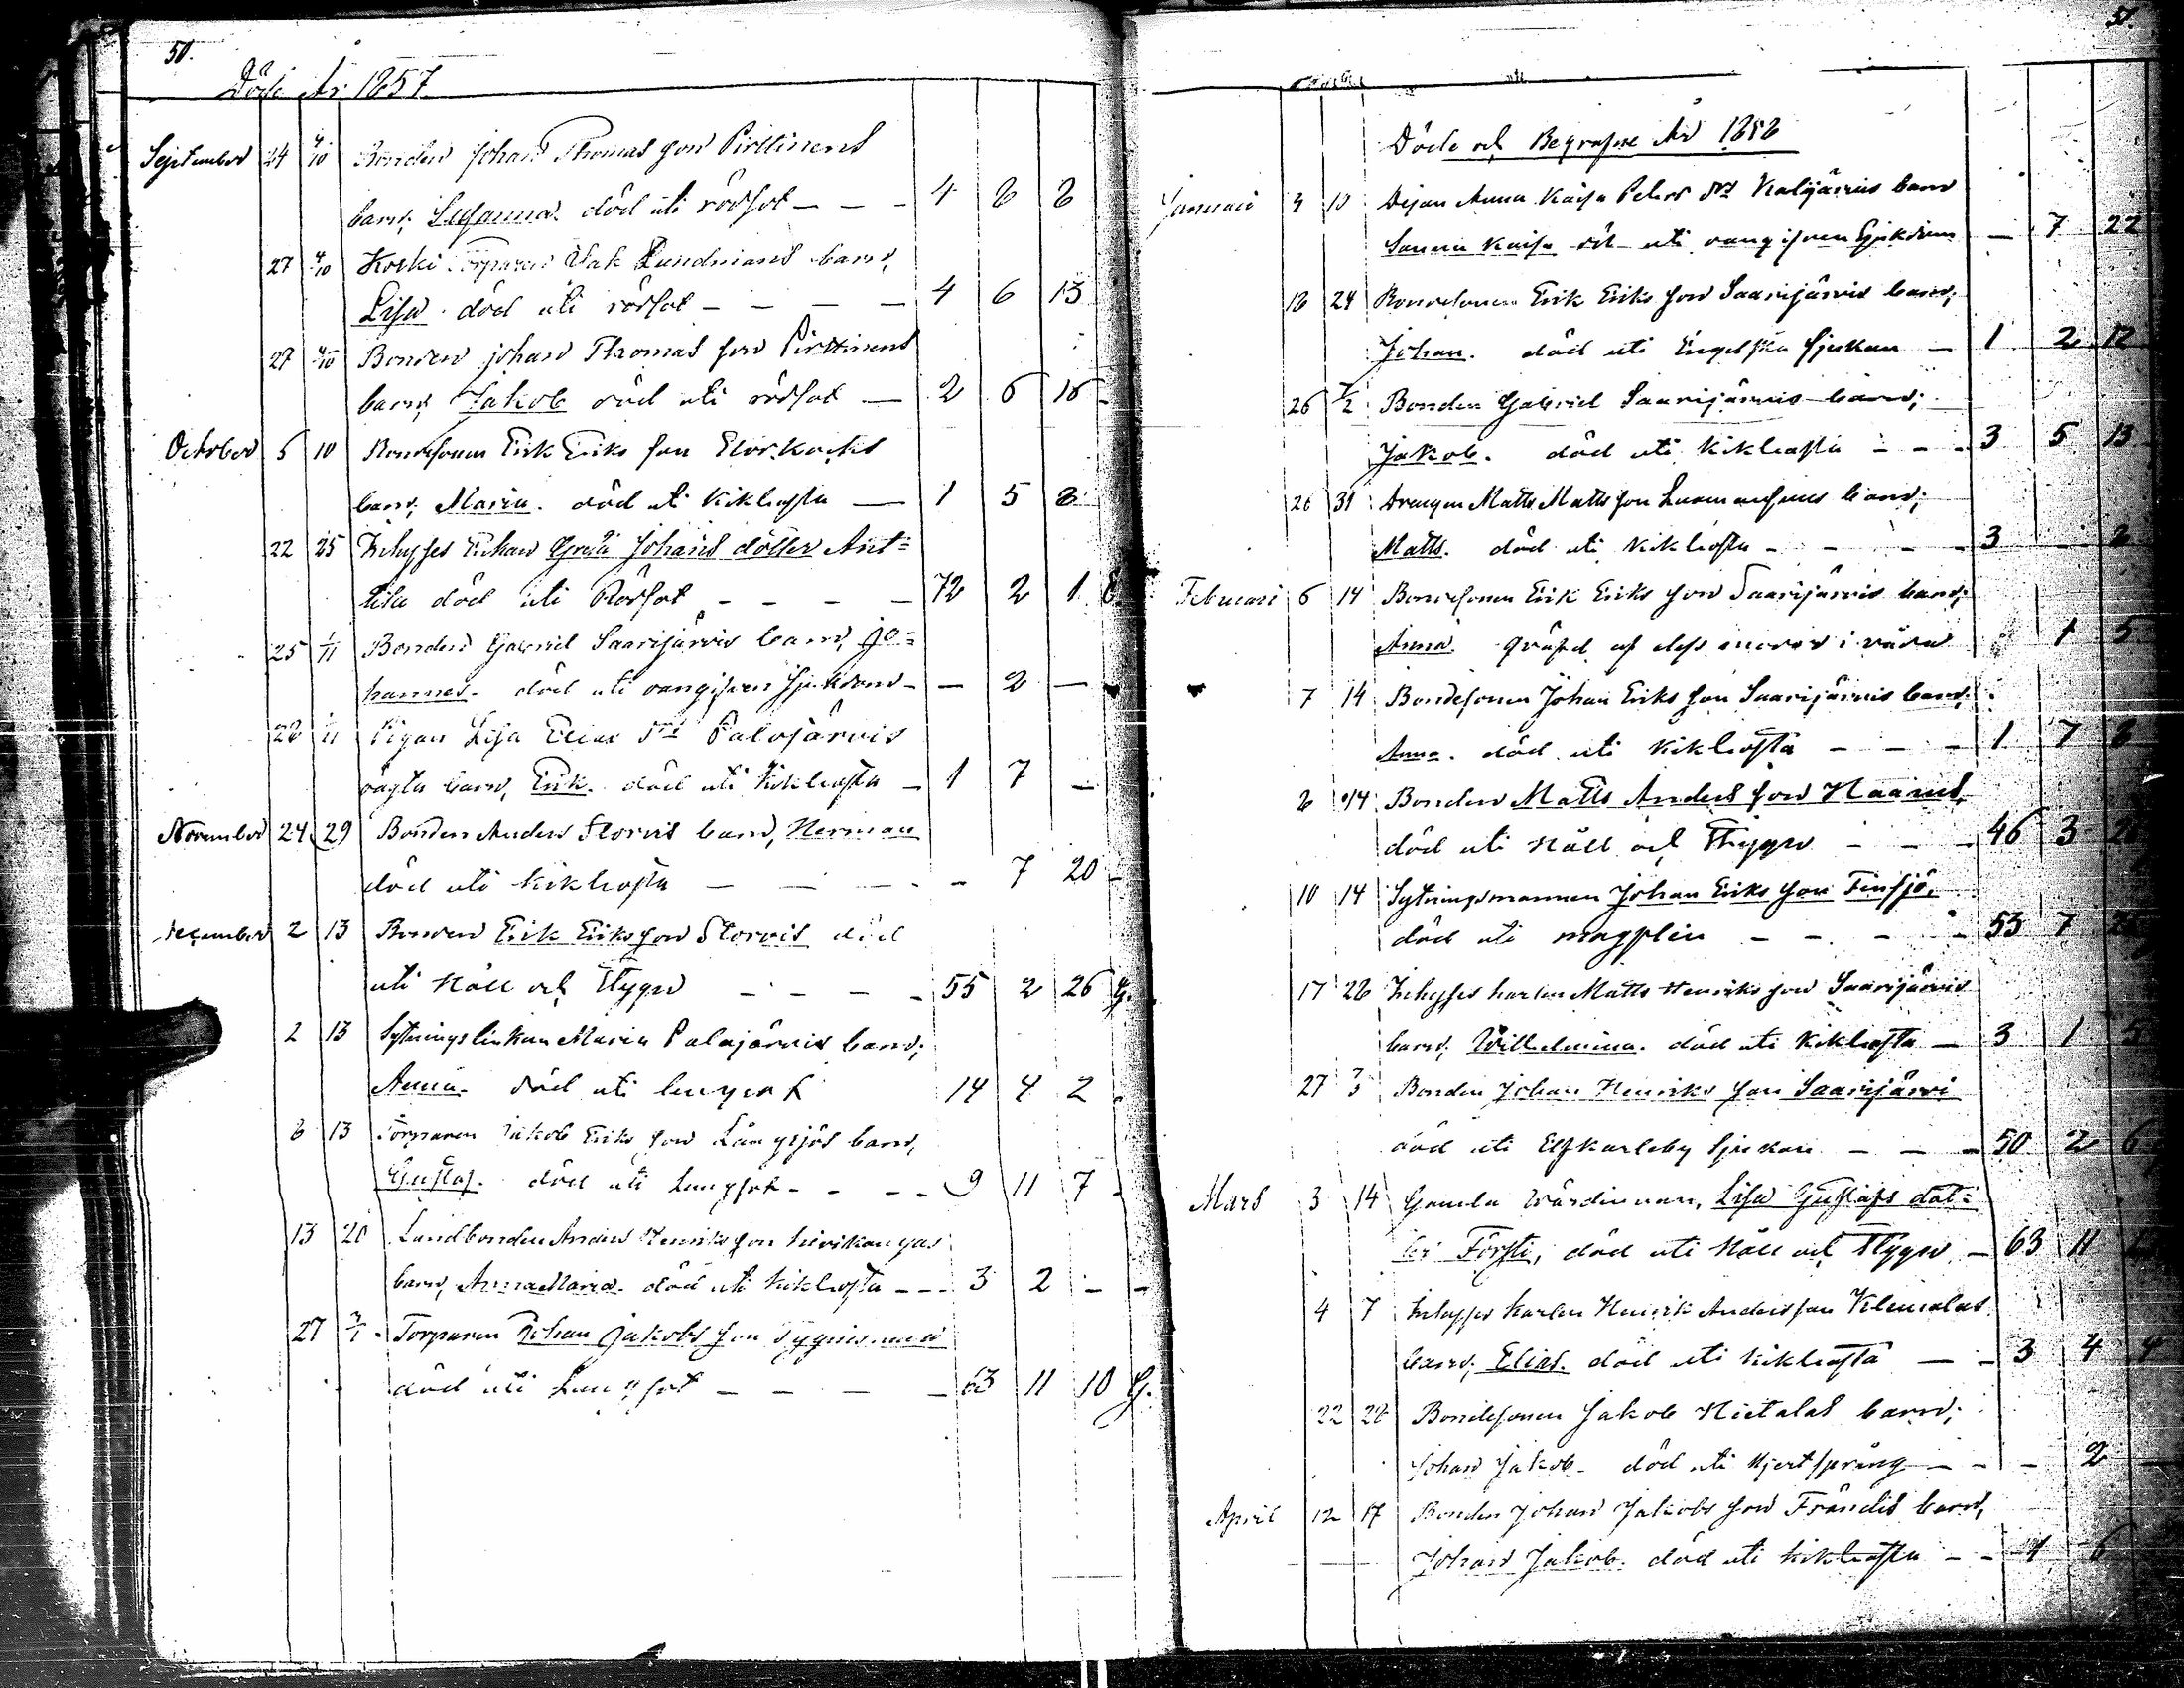 50.
Döde År 1857
September 24 4/10 Bonden Johan Thomas son Pirttinens
barn, Susanna. död uti rödsot - - - 4 8 8
27 4/10 Koski Torparen Isak Lundmans barn,
Lisa. död uti rödsot - - - - 4 6 13
27 4/10 Bonden Johan Thomas son Pirttinens
barn, Jakob död uti rödsot - 2 6 16
October 5 10 Bondesonen Erik Eriks son
barn; Maria. död uti Kikhosta - 1 5 8
22 25 Inhyses Enkan Greta Johans dotter Ant=
tila död uti Rödsot - - - - 72 2 1 E.
25 1/11 Bonden Gabriel Saarijärvis barn, Jo=
hannes. död uti oangifven sjukdom - - 2 -
28 1/11 Pigan Lisa Elias dr Palojärvis
oägta barn, Erik. död uti Kikhosta - 1 7 -
November 24 29 Bonden Anders Storvis barn, Herman
död uti kikhosta - - - - 7 20 -
December 2 13 Bonden Erik Eriks son Storvis död
uti Håll och Stygn - - - - 55 2 26 G.
2 13 Sytningsenkan Maria Palojärvis barn;
Anna. död uti lungsot 14 4 2
8 13 Torparen Jakob Eriks son Långsjös barn,
Gustaf. död uti Lungsot - - - - 9 11 7 -
13 20 Landbonden Anders Henriks son
barn, Anna Maria. död uti kikhosta - - - 3 2 - -
27 3/1 Torparen Johan Jakobs son
död uti Lungsot - - - - 63 11 10 G.
51.
Döde och Begrafne År 1858
Januari 4 10 Pigan Anna Kaisa Peters dr Kaljärvis barn
Sanna Kaisa död uti oangifven Sjukdom - 7 22
18 24 Bondesonen Erik Eriks son Saarijärvis barn;
Johan. död uti Engelska sjukan - 1 2 12
26 7/2 Bonden Gabriel Saarijärvis barn;
Jakob. död uti Kikhosta - - - 3 5 13
26 31 Drengen Matts Matts son barn;
Matts. död uti Kikhosta - - - - 3 - 2
Februari 6 14 Bondesonen Erik Eriks son Saarijärvis barn;
Anna. qväfd af dess moder i våda 1 5
7 14 Bondesonen Johan Eriks son Saarijärvis barn;
Anna. död uti Kikhosta - - - 1 7 8
8 14 Bonden Matts Anders son Haanus,
död uti Håll och Stygn - - - 46 3
10 14 Sytningsmannen Johan Eriks son Finsjö,
död uti magplin - - - - 53 7
17 28 Inhyses karlen Matts Henriks son Saarijärvis
barn; Willhelmina. död uti Kikhosta - 3 1 5
27 7/3 Bonden Johan Henriks son Saarijärvi
död uti Elfkarleby Sjukan - - - 50 2 6
Mars 3 14 Gamla Wärdinnan, Lisa Gustafs dot=
ter Försti, död uti Håll och Stygn - 63 11
4 7 Inhyses karlen Henrik Anders son Klemolas
barn; Elias. död uti kikhosta - - 3 4 4
22 28 Bondesonen Jakob Hietalas barn;
Johan Jakob. död uti Hjertsprång - - - 2 -
April 12 17 Bonden Johan Jakobs son Frändis barn,
Johan Jakob. död uti kikhosta - - 4 6